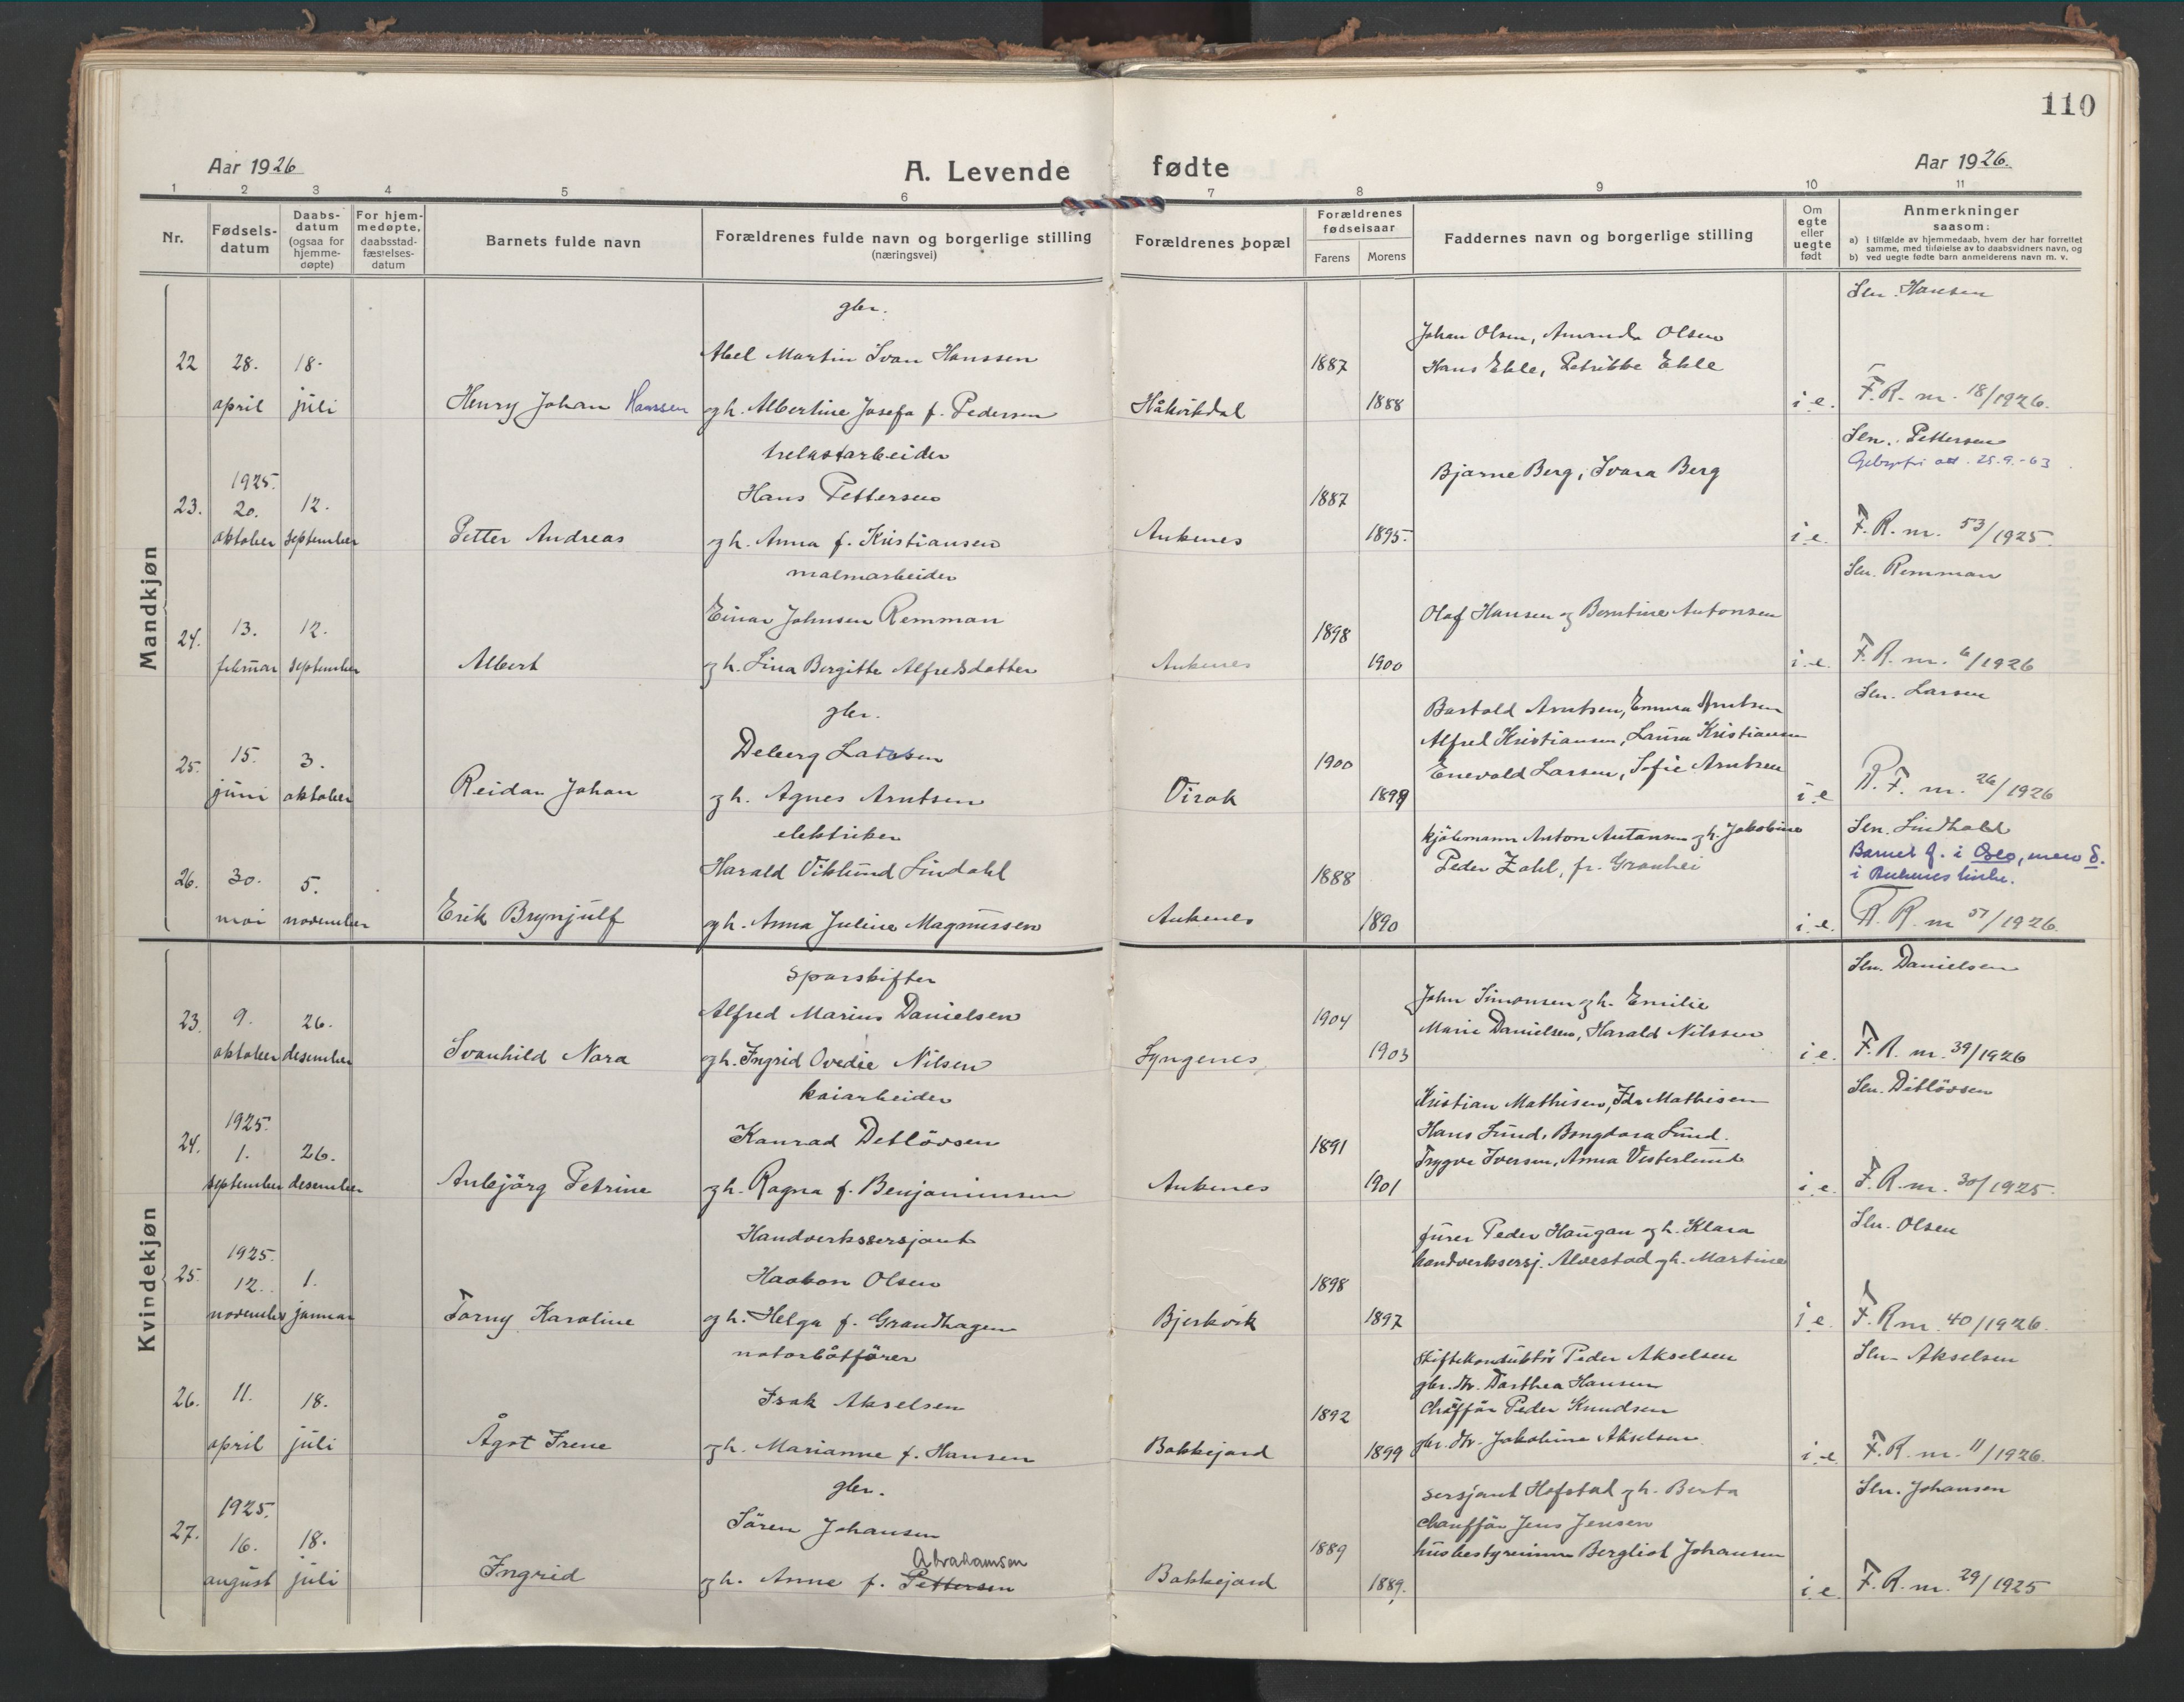 110
Aar 1926
A. Levende fødte
Aar 1926.
1 2 3 4 5 6 7 8 9 10 11
Nr.
Fødselsdatum
Daabsdatum (ogsaa for hjemmedøpte)
For hjemmedøpte, daabsstadfæstelsesdatum
Barnets fulde navn
Forældrenes fulde navn og borgerlige stilling (næringsvei)
Forældrenes bopæl
Forældrenes fødselsaar
Farens Morens
Faddernes navn og borgerlige stilling
Om egte eller uegte født
Anmerkninger saasom:
a) i tilfælde av hjemmedaab, hvem der har forrettet samme, med tilføielse av to daabsvidners navn, og
b) ved uegte fødte barn anmelderens navn m. v.
Mandkjøn
gbr. Sln. Hansen
22 28. 18. Abel Martin Ivan Hanssen 1887 Johan Olsen, Amanda Olsen
Hans Ekle, Ekle
april juli Henry Johan Hanssen og h. Albertine Josefa f. Pedersen Håkvikdal 1888 i.e. F.R. nr. 18/1926.
trelastarbeider Sln. Pettersen
25.9.-63
1925.
23. 20. 12. Hans Pettersen 1887 Bjarne Berg, Ivara Berg
oktober september Petter Andreas og h. Anna f. Kristiansen Ankenes 1895. i.e. F.R. nr. 53/1925.
malmarbeider Sln. Remman
24. 13. 12. Einar Johnsen Remman 1898 Olaf Hansen og Berntine Antonsen
februar september Albert og h. Lina Bergitte Alfredsdatter Ankenes 1900 i.e. F.R. nr. 6/1926
gbr. Sln. Larsen
25. 15. 3. Deberg Larssen 1900 Bartold Arntsen, Emma Arntsen
Alfred Kristiansen, Laura Kristiansen
Enevold Larsen, Sofie Arntsen
juni oktober Reidar Johan og h. Agnes Arntsen Virak 1899 i.e. R.F. nr. 26/1926
elektriker Sln. Lindhall
Barnet f. i Oslo, men d.
i Ankenes kirke.
26. 30. 5. Harald Viklund Lindahl 1888 kjølemann Anton Antonsen og h. Jakobine
Peder Zahl, fr. Granhei
mai november Erik Brynjulf og h. Anna Juline Magnussen Ankenes 1890 i.e. F.R. nr 51/1926.
Kvindekjøn
sporskifter Sln. Danielsen
23. 9. 26. Alfred Marius Danielsen 1904 John Simonsen og h. Emilie
Marie Danielsen, Harald Nilssen
oktober desember Svanhild Nora og h. Ingrid Ovedie Nilsen Lyngenes 1903 i.e. F.R. nr. 39/1926
kaiarbeider Sln. Ditløvsen
1925.
24. 1. 26. Konrad Detløvsen 1891 Kristian Mathisen, Ida Mathisen
Hans Lund, Lund.
Trygve Iversen, Anna Vesterlund
september desember Anbjørg Petrine og h. Ragna f. Benjaminsen Ankenes 1901 i.e. F.R. nr. 30/1925.
Handverkssersjant Sln. Olsen
1925.
25. 12. 1. Haakon Olsen 1898 furer Peder Haugan og h. Klara
handverksersj. Alvestad og h. Martine
november januar Torny Karoline og h. Helga f. Grandhagen Bjerkvik 1897 i.e. F.R nr. 40/1926.
motorbåtfører Sln. Akselsen
26. 11. 18. Isak Akselsen 1892 Skiftekonduktør Peder Akselsen
gbr. Dorthea Hansen
Chaffør Peder Knudsen
gbr. Jakobine Akselsen
april juli Ågot Irene og h. Marianne f. Hansen Bakkejord 1899 i.e. F.R. nr. 11/1926.
gbr. Sln. Johansen
1925.
27. 16. 18. Søren Johansen 1889 sersjant Hofstad og h. Berta
Chauffør Jens Jensen
husbestyrerinne Bergliot Johansen
Abrahamsen
august juli Ingrid og h. Anne f. Pettersen Bakkejord 1889. i.e. F.R. nr. 29/1925